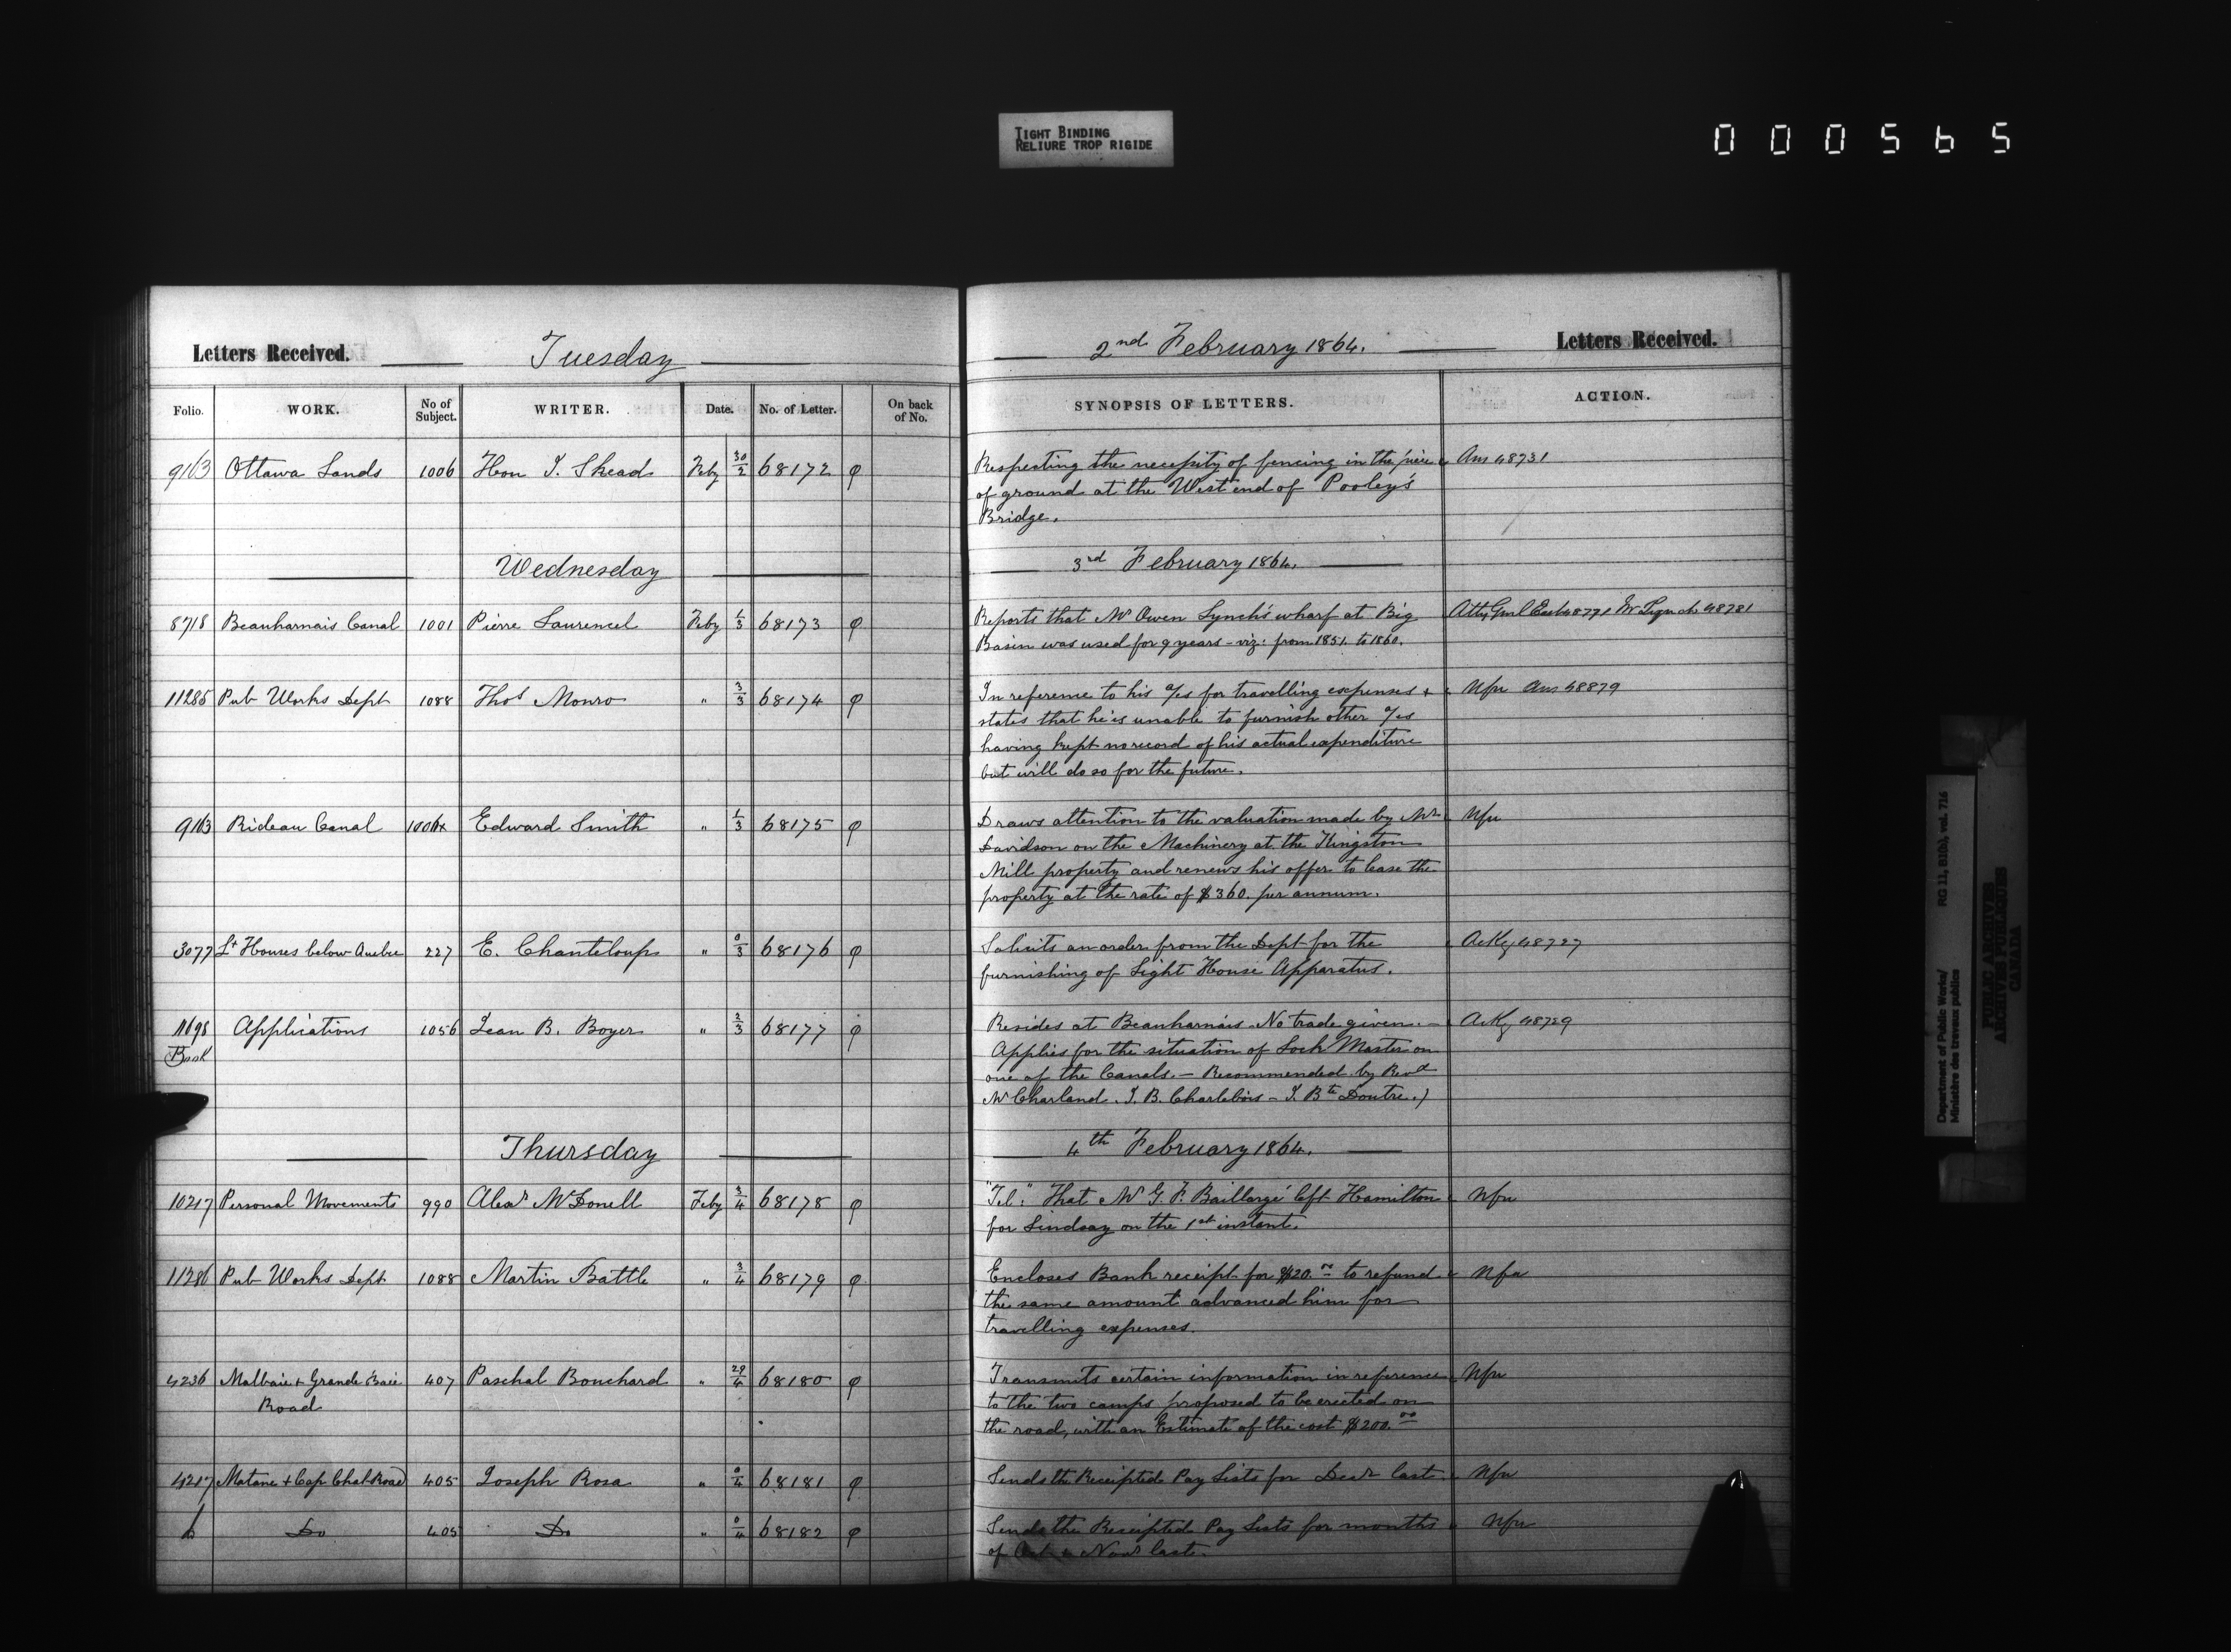 TIGHT BINDING
RELIURE TROP RIGIDE
000565
Letters Received. Tuesday
Folio. WORK. No of Subject. WRITER. Date. No. of Letter. On back of No.
9163 Ottawa Lands 1006 Hon J. Skead Feby 30/2 68172 φ
Wednesday
8718 Beauharnais Canal 1001 Pierre Laurencel Feby 1/3 68173 φ
11285 Pub Works Dept 1088 Thos Monro " 3/3 68174 φ
9163 Rideau Canal 1006x Edward Smith " 1/3 68175 φ
3077 Lt Houses below Quebec 227 E. Chanteloup " 0/3 68176 φ
11698 Applications 1056 Jean B. Boyer " 2/3 68177 φ
Book
Thursday
10217 Personal Movements 990 Alexr McDonell Feby 3/4 68178 φ
11286 Pub Works Dept 1088 Martin Battle " 3/4 68179 φ
4236 Malbaie + Grande Baie 407 Paschal Bouchard " 29/4 68180 φ
Road
4217 Matane + Cap Chat Road 405 Joseph Rosa " 0/4 68181 φ
Do 405 Do " 0/4 68182 φ
2nd February 1864. Letters Received.
SYNOPSIS OF LETTERS. ACTION.
Respecting the necessity of fencing in the piece Ans 48731
of ground at the West end of Pooley's
Bridge.
3rd February 1864.
Reports that Mr Owen Lynch's wharf at Big Atty Genl East 48771 Mr Lynch 48781
Basin was used for 9 years - viz: from 1851. to 1860.
In reference to his a/cs for travelling expenses + Nfn Ans 48879
states that he is unable to furnish other a/cs
having kept no record of his actual expenditure
but will do so for the future.
Draws attention to the valuation made by Mr Nfn
Davidson on the Machinery at the Kingston
Mill property and renews his offer to lease the
property at the rate of $360. per annum.
Solicits an order from the Dept for the AcKg 48727
furnishing of Light House Apparatus.
Resides at Beauharnais. No trade given. - AcKg 48729
Applies for the situation of Lock Master on
one of the Canals. - Recommended by Revd
Mr Charland. J. B. Charlebois - J. Bte Doutre.)
4th February 1864.
"Tel:" That Mr G. F. Baillargé left Hamilton Nfn
for Lindsay on the 1st instant.
Encloses Bank receipt for $20.00 to refund Nfn
the same amount advanced him for
travelling expenses.
Transmits certain information in reference Nfn
to the two camps proposed to be erected on
the road, with an Estimate of the cost $200.00
Sends the Receipted Pay Lists for Decr last. Nfn
Sends the Receipted Pay Lists for months Nfn
of Oct & Novr last.
Department of Public Works/ RG 11, B1(b), vol. 716
Ministère des travaux publics
PUBLIC ARCHIVES
ARCHIVES PUBLIQUES
CANADA